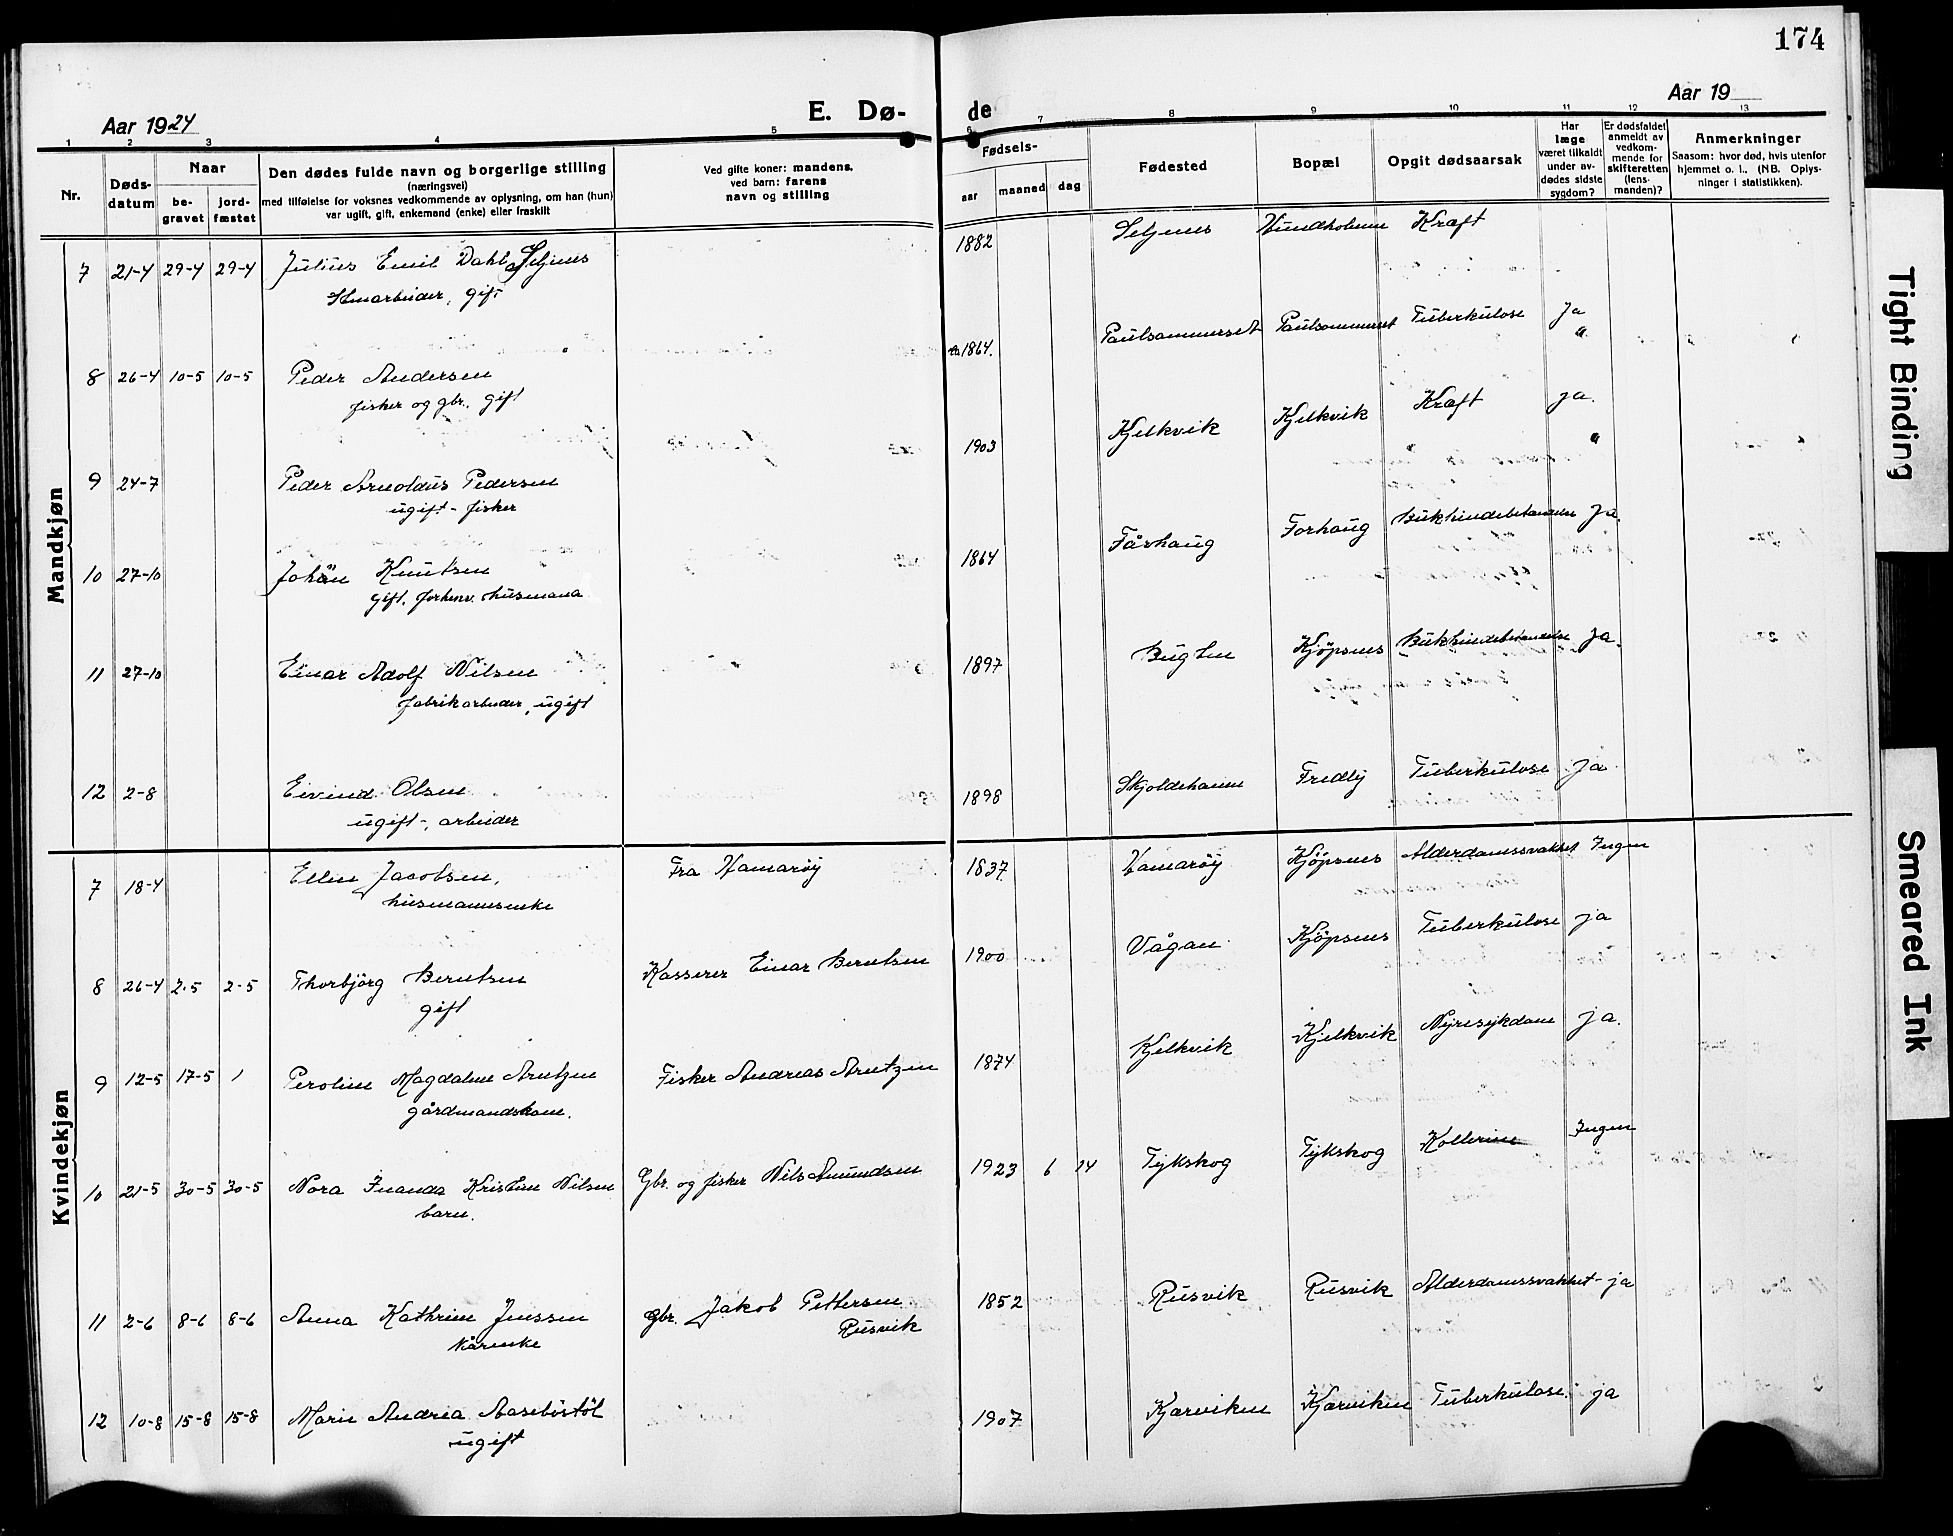 174
Aar 1924
E. Dø-
de
Aar 19
1 2 3 4 5 6 7 8 9 10 11 12 13
Nr.
Døds-
datum
Naar
be-
gravet
jord-
fæstet
Den dødes fulde navn og borgerlige stilling
(næringsvei)
med tilføielse for voksnes vedkommende av oplysning, om han (hun)
var ugift, gift, enkemand (enke) eller fraskilt
Ved gifte koner: mandens,
ved barn: farens
navn og stilling
Fødsels-
aar
maaned
dag
Fødested
Bopæl
Opgit dødsaarsak
Har
læge
været tilkaldt
under av-
dødes sidste
sygdom?
Er dødsfaldet
anmeldt av
vedkom-
mende for
skifteretten
(lens-
manden)?
Anmerkninger
Saasom: hvor død, hvis utenfor
hjemmet o. l.. (NB. Oplys-
ninger i statistikken).
Mandkjøn
7 21-4 29-4 29-4 Julius Emil Dahl Seljenes 1882 Seljenes Hundholmen Kræft
gift
8 26-4 10-5 10-5 Peder Andersen 1864. Paulsommerset Paulsommerset Tuberkulose Ja
fisker og gbr. gift
9 24-7 Peder Arnoldus Pedersen 1903 Kjelkvik Kjelkvik Kræft ja.
ugift - fisker
10 27-10 Johan Knutsen 1864 Fårhaug Forhaug Bukhindebetændelse Ja.
gift. forhenv. husmand
11 27-10 Einar Adolf Nilsen 1897 Bugten Kjöpsnes Bukhindebetændelse Ja.
fabrikarbeider, ugift
12 2-8 Eivind Olsen 1898 Skjoldehamn Fredly Tuberkulose Ja
ugift -, arbeider
Kvindekjøn
7 18-4 Ellen Jacobsen, Fra Hamarøy 1837 Hamarøy Kjöpsnes Alderdomssvakhet Ingen
husmannsenke
8 26-4 2-5 2-5 Thorbjörg Berntsen Kasserer Einar Berntsen 1900 Vågan Kjöpsnes Tuberkulose ja
gift
9 12-5 17-5 1 Peroline Magdalene Arntzen Fisker Andreas Arntzen 1874 Kjelkvik Kjelkvik Nyresykdom ja.
gårdmandskone.
10 21-5 30-5 30-5 Nora Inanda Kristine Nilsen Gbr. og fisker Nils Amundsen 1923 6 14 Tykskog Tykskog Kollerine Ingen
barn.
11 2-6 8-6 8-6 Anna Kathrine Jenssen gbr. Jakob Pettersen 1852 Rusvik Rusvik Alderdomssvakhet - ja
Kårenke Rusvik
12 10-8 15-8 15-8 Marie Andrea Aasebøstöl 1907 Kjærviken Kjærviken Tuberkulose. ja
ugift
Tight Binding
Smeared Ink